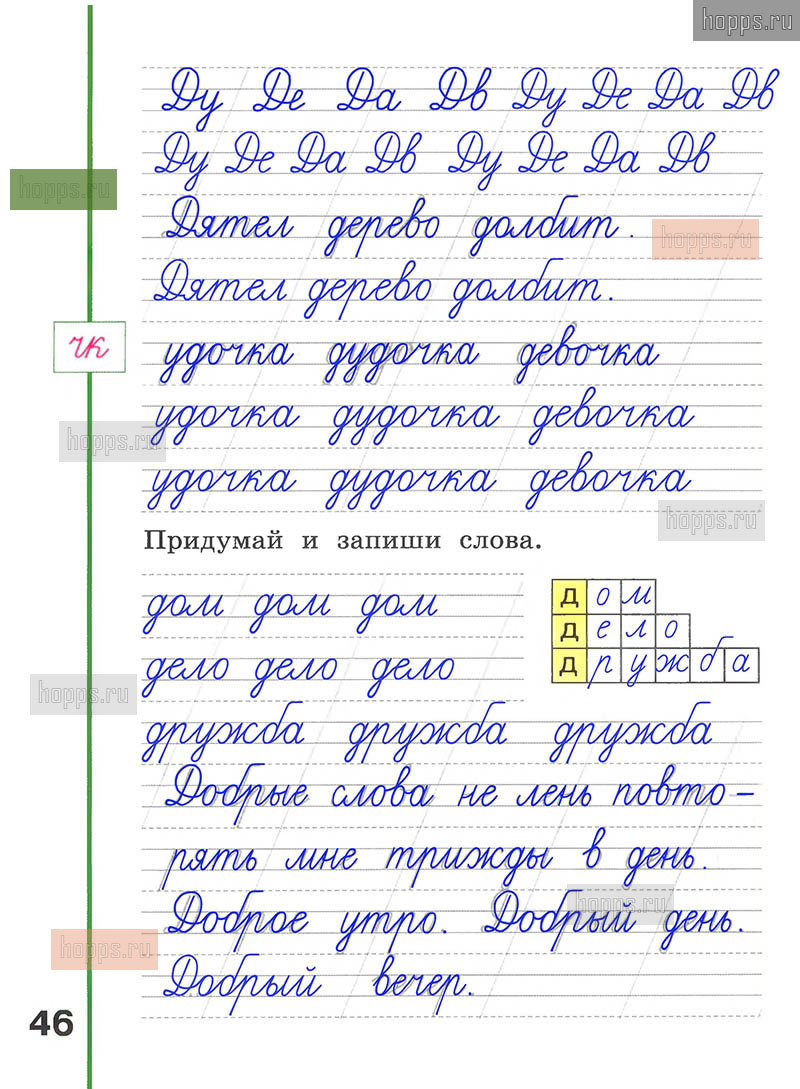 hopps.ru
Ду Де Да Дв Ду Де Да Дв
Ду Де Да Дв Ду Де Да Дв
hopps.ru
Дятел дерево долбит.
hopps.ru
Дятел дерево долбит.
чк
удочка дудочка девочка
удочка дудочка девочка
hopps.ru
удочка дудочка девочка
hopps.ru
Придумай и запиши слова.
дом дом дом
дом
дело
дружба
дело дело дело
hopps.ru
дружба дружба дружба
Добрые слова не лень повто-
рять мне трижды в день.
hopps.ru
Доброе утро. Добрый день.
hopps.ru
Добрый вечер.
46